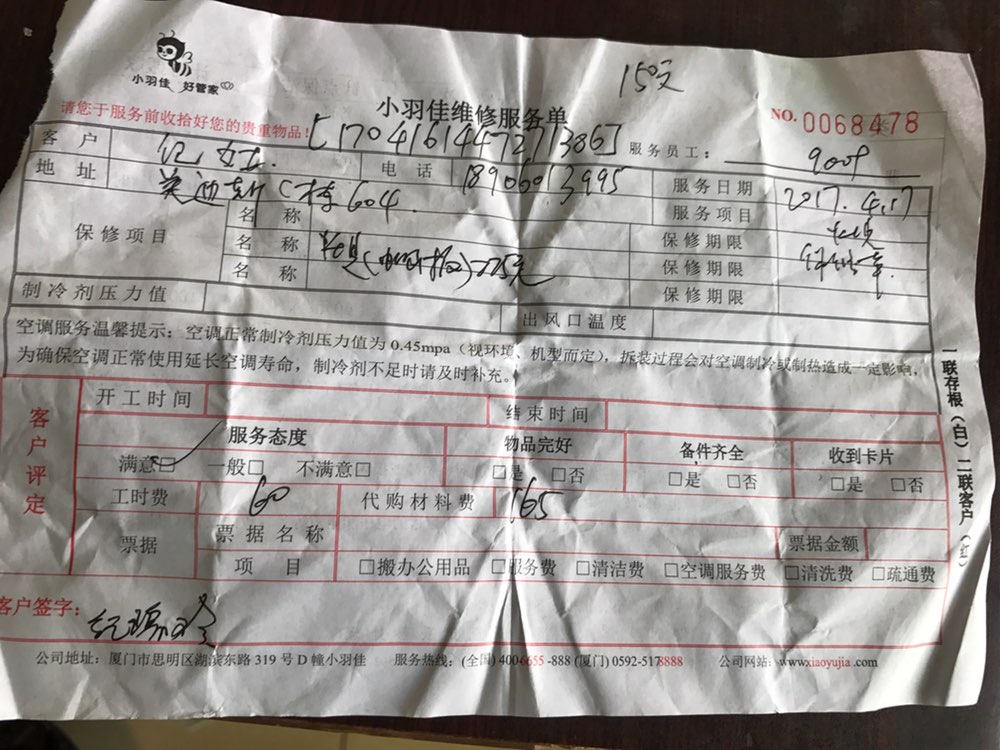 小羽佳 好管家
150元
小羽佳维修服务单
NO. 0068478
请您于服务前收拾好您的贵重物品！
[1704161447271386]
服务员工： 9009
客户 纪女士
电话 18906013995
地址 美迪斯C栋604
服务日期 2017.4.17
服务项目
保修项目
名称
保修期限
名称 225元
保修期限
名称
保修期限
制冷剂压力值
出风口温度
空调服务温馨提示：空调正常制冷剂压力值为 0.45mpa（视环境、机型而定），拆装过程会对空调制冷或制热造成一定影响，
为确保空调正常使用延长空调寿命，制冷剂不足时请及时补充。
一联存根（白）二联客户（红）
客户评定
开工时间
结束时间
服务态度 物品完好 备件齐全 收到卡片
满意□ 一般□ 不满意□ □是 □否 □是 □否 □是 □否
工时费 60 代购材料费 165
票据
票据名称
票据金额
项目 □搬办公用品 □服务费 □清洁费 □空调服务费 □清洗费 □疏通费
客户签字：
公司地址：厦门市思明区湖滨东路 319 号 D 幢小羽佳 服务热线：(全国) 4006655-888 (厦门) 0592-5178888 公司网站：www.xiaoyujia.com